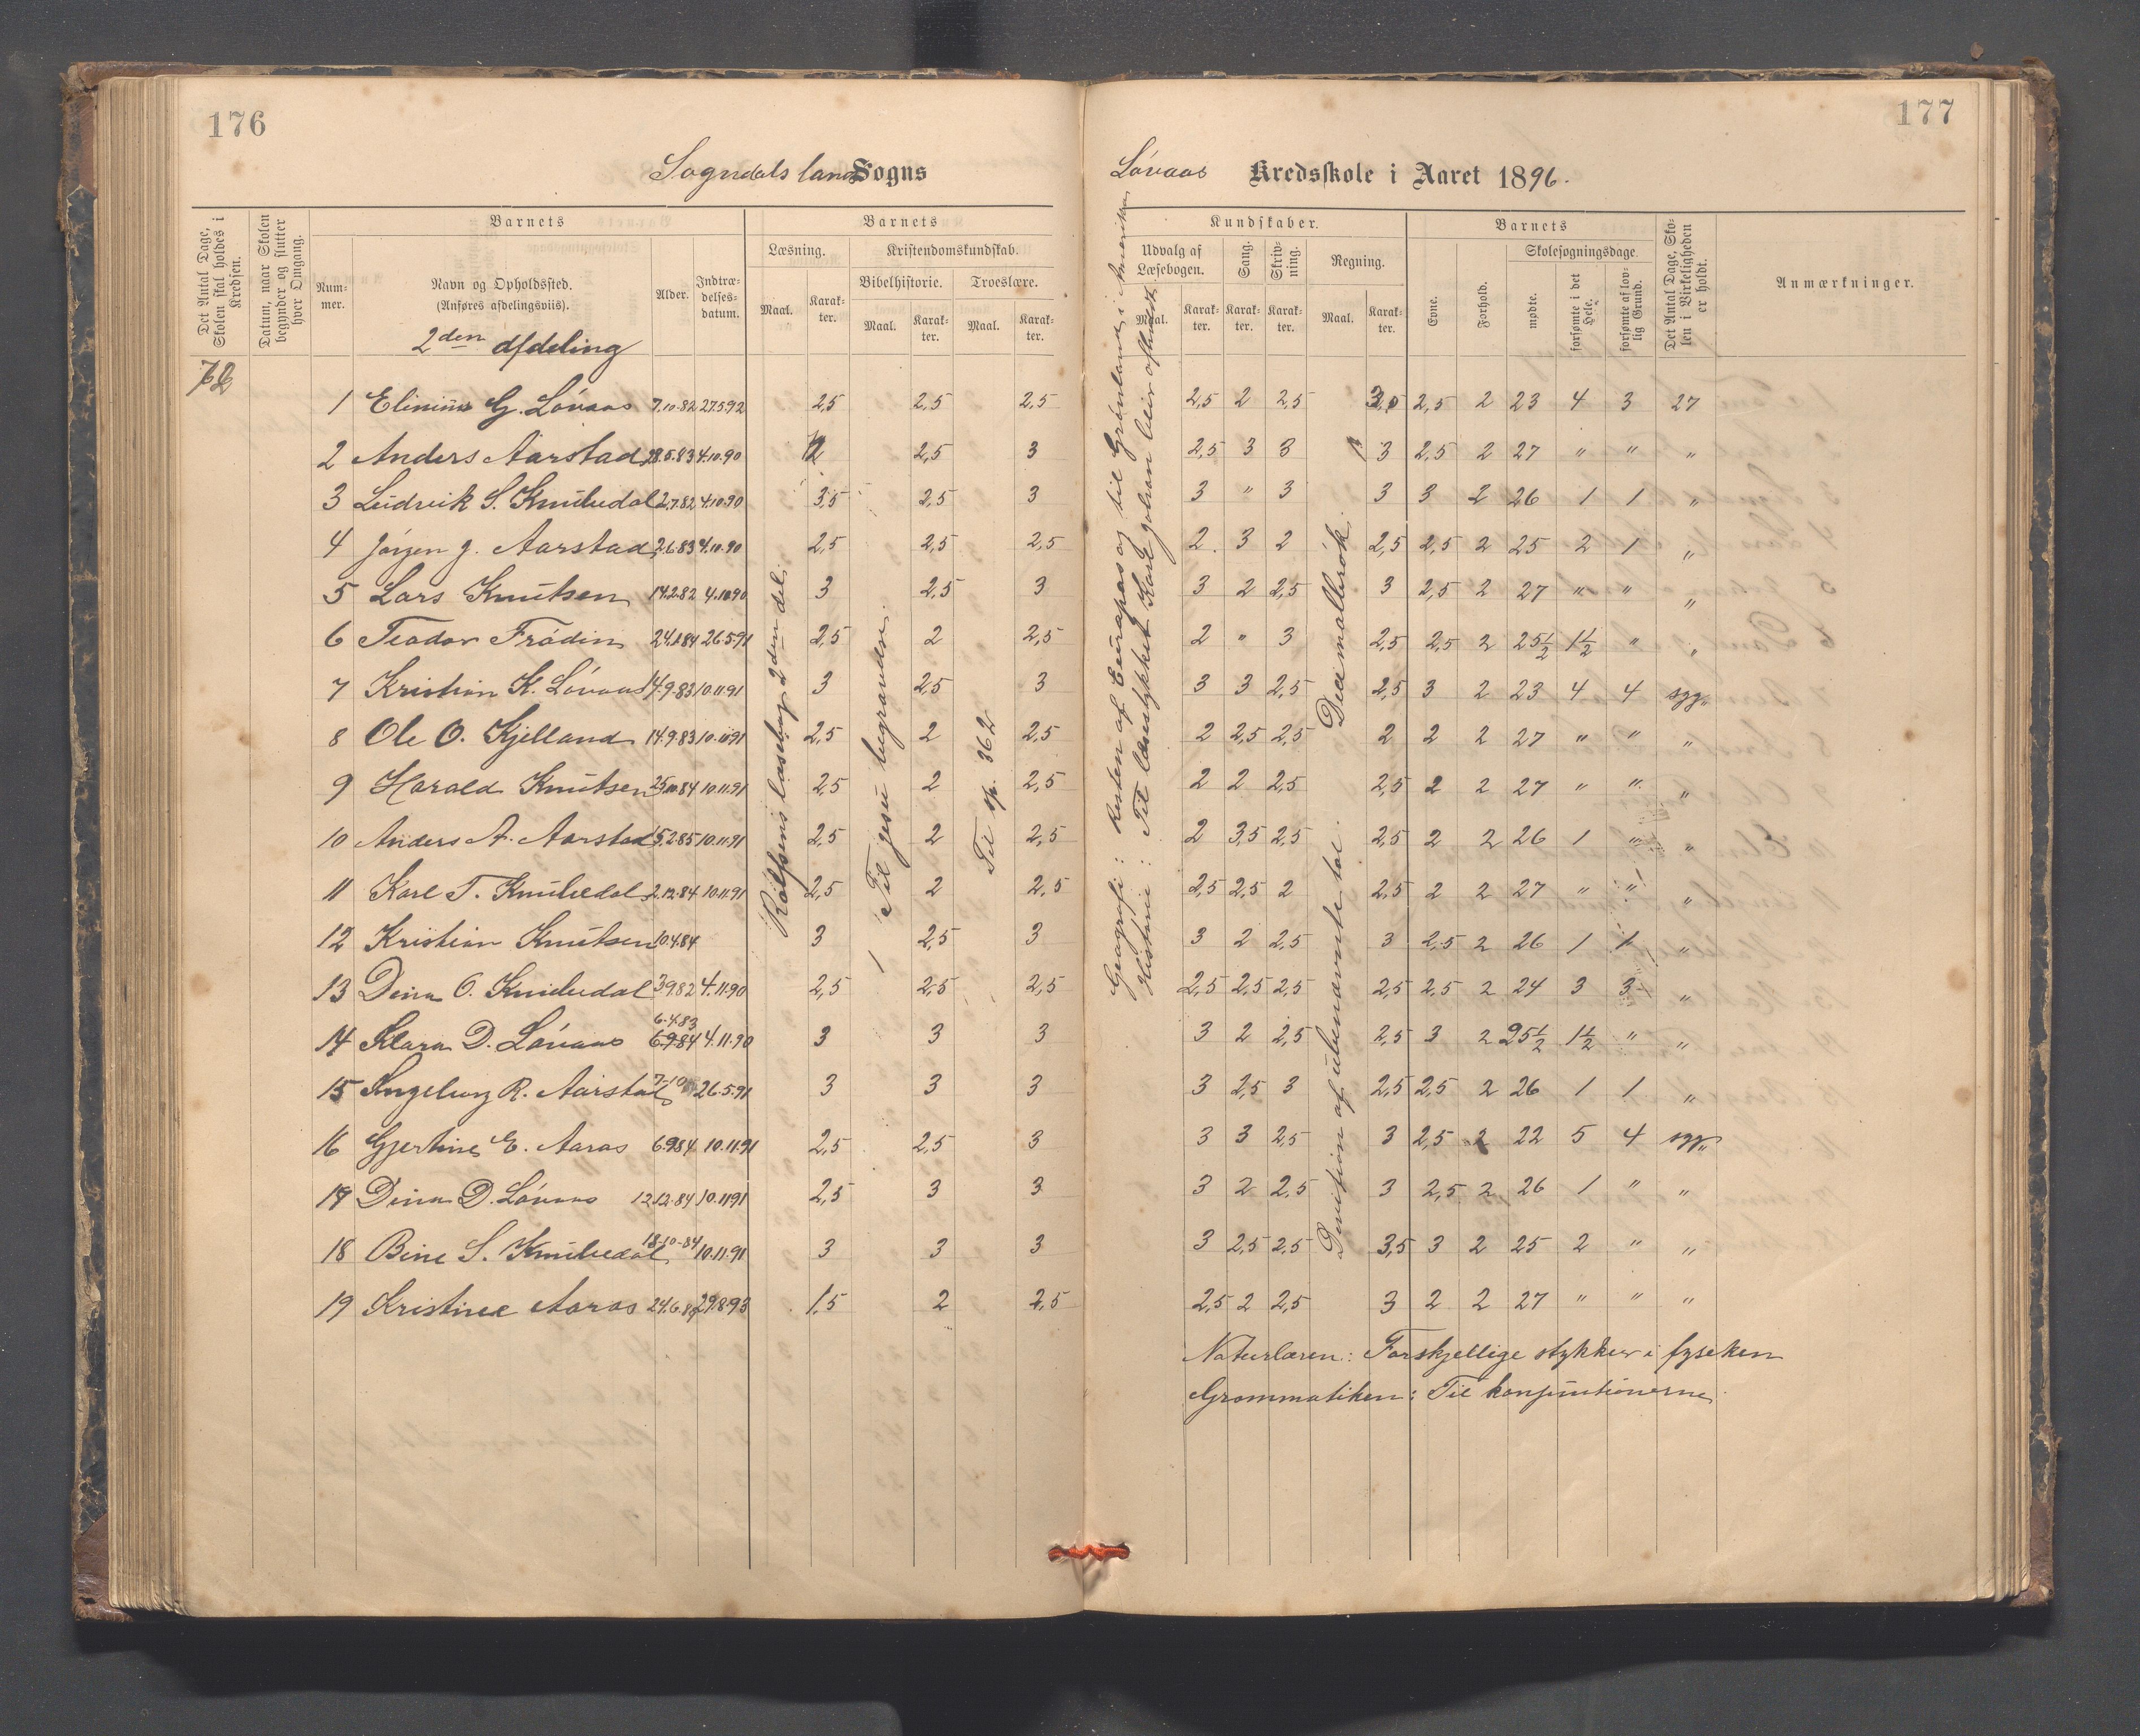 176
177
Sogndals lands Sogns
Lóvaas Kredsskole i Aaret 1896.
Det Antal Dage, Skolen skal holdes i Kredsen.
Datum, naar Skolen begynder og slutter hver Omgang.
Barnets
Num-mer.
Navn og Opholdssted.
(Anføres afdelingsviis).
Alder.
Indtræ-delses-datum.
Barnets
Læsning.
Kristendomskundskab.
Bibelhistorie.
Troeslære.
Maal. Karak-ter. Maal. Karak-ter. Maal. Karak-ter.
Kundskaber.
Udvalg af Læsebogen.
Sang.
Skriv-ning.
Regning.
Maal. Karak-ter. Karak-ter. Karak-ter. Maal. Karak-ter.
Barnets
Evne.
Forhold.
Skolesøgningsdage.
mødte.
forsømte i det Hele.
forsømte af lov-lig Grund.
Det Antal Dage, Sko-len i Virkeligheden er holdt.
Anmærkninger.
2den afdeling
1 G. Lóvaas 7.10.82 27.5.92 2,5 2,5 2,5 2,5 2 2,5 2,5 2 23 4 3 27
2 Anders Aarstad 28.5.83 4.10.90 2 2,5 3 2,5 3 3 3 2,5 2 27 " " "
3 Ludvik S. Knubedal 2.7.82 4.10.90 3,5 2,5 3 3 " 3 3 3 2 26 1 1 "
4 Jörgen J. Aarstad 2.6.83 4.10.90 2,5 2,5 2,5 2 3 2 2,5 2,5 2 25 2 1 "
5 Lars Knutsen 14.2.82 4.10.90 3 2,5 3 3 2 2,5 3 2,5 2 27 " " "
6 Teodor Frödin 24.1.84 26.5.91 2,5 2 2,5 2 " 3 2,5 2,5 2 25½ 1½ " "
7 Kristian K. Lóvaas 14.9.83 10.11.91 3 2,5 3 3 3 2,5 2,5 3 2 23 4 4 syg "
8 Ole O. Kjelland 14.9.83 10.11.91 2,5 2 2,5 2 2,5 2,5 2 2 2 27 " " "
9 Harald Knutsen 25.10.84 10.11.91 2,5 2 2,5 2 2 2,5 2,5 2 2 27 " " "
10 Anders A. Aarstad 15.2.85 10.11.91 2,5 2 2,5 2 3,5 2,5 2,5 2 2 26 1 " "
11 Karl T. Knubedal 2.12.84 10.11.91 2,5 2 2,5 2,5 2,5 2 2,5 2 2 27 " " "
12 Kristian Knutsen 10.4.84 3 2,5 3 3 2 2,5 3 2,5 2 26 1 1 "
13 Dina O. Knubedal 3.9.82 4.11.90 2,5 2,5 2,5 2,5 2,5 2,5 2,5 2,5 2 24 3 3 "
6.4.83
14 Klara D. Lóvaas 6.9.84 4.11.90 3 3 3 3 2 2,5 2,5 3 2 25½ 1½ " "
15 Ingeborg R. Aarstad 7-10 26.5.91 3 3 3 3 2,5 3 2,5 2,5 2 26 1 1 "
16 Gjertine E. Aaros 6.9.84 10.11.91 2,5 2,5 3 3 3 2,5 3 2,5 2 22 5 4 syg "
17 Dina D. Lóvaas 12.12.84 10.11.91 2,5 3 3 3 2 2,5 3 2,5 2 26 1 " "
18 Bine S. Knubedal 18-10-84 10.11.91 3 3 3 3 2,5 2,5 3,5 3 2 25 2 " "
19 Kristine Aaros 24.6.8 29.8.93 1,5 2 2,5 2,5 2 2,5 3 2 2 27 " " "
Rolfsens læsebog 2den del.
Til jesu begravelse.
Til sp. 362
Geografi: Resten af Europas og til Grønland i Amerika
Historie: Til læsestykket Karl Johan blir
Division af ubenævnte tal. Decimalbrök.
Naturlæren: Forskjellige stykker i fysiken
Grammatiken: Til konjuntionerne